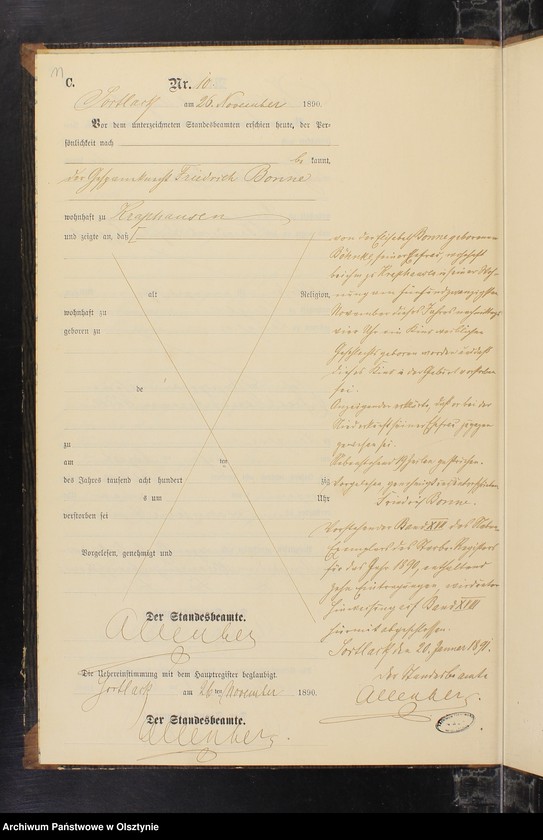 C.
Nr. 10.
am 26. November 1890.
Vor dem unterzeichneten Standesbeamten erschien heute, der Per-
sönlichkeit nach
be kannt,
der Friedrich Bonne
wohnhaft zu Kraphausen
und zeigte an, daß
von der Bonne geborenen
seiner Ehefrau, wohnhaft
bei ihm zu Kraphausen in seiner Woh-
alt Religion,
nung am fünfundzwanzigsten
wohnhaft zu
November dieses Jahres nachmittags
geboren zu
vier Uhr ein Kind weiblichen
Geschlechts geboren worden und daß
dieses Kind in der Geburt verstorben
de
sei.
Anzeigender erklärte, daß er bei der
Niederkunft seiner Ehefrau zugegen
gewesen sei.
zu
am ten
gestrichen.
des Jahres tausend acht hundert zig
Vorgelesen, genehmigt und unterschrieben
s um Uhr
Friedrich Bonne.
verstorben sei
Vorstehender Band XII des Neben
Exemplars des Sterbe Registers
Vorgelesen, genehmigt und
für das Jahr 1890, enthaltend
zehn Eintragungen, wird unter
Hinweisung auf Band XIII
hiermit abgeschlossen.
Der Standesbeamte.
den 20. Januar 1891.
Der Standesbeamte
Die Uebereinstimmung mit dem Hauptregister beglaubigt.
am 26ten November 1890.
Der Standesbeamte.
Archiwum Państwowe w Olsztynie